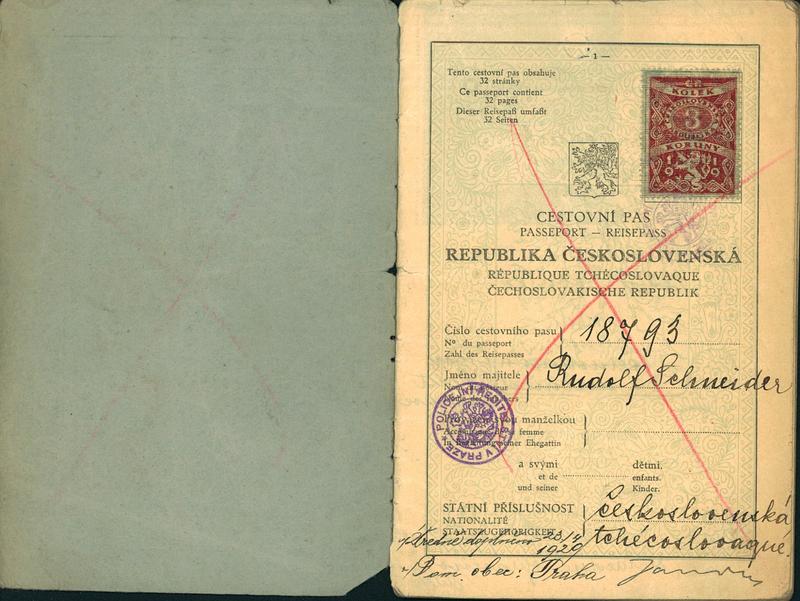 — 1 —
Tento cestovní pas obsahuje
32 stránky
Ce passeport contient
32 pages
Dieser Reisepaß umfaßt
32 Seiten
KOLEK
3
KORUNY
1919
CESTOVNÍ PAS
PASSEPORT — REISEPASS
REPUBLIKA ČESKOSLOVENSKÁ
RÉPUBLIQUE TCHÉCOSLOVAQUE
ČECHOSLOVAKISCHE REPUBLIK
Číslo cestovního pasu 18793
No du passeport
Zahl des Reisepasses
Jméno majitele Rudolf Schneider
manželkou
femme
Ehegattin
POLICEJNÍ ŘEDITELSTVÍ V PRAZE
a svými dětmi.
et de enfants.
und seiner Kinder.
STÁTNÍ PŘÍSLUŠNOST československá
NATIONALITÉ
STAATSZUGEHÖRIGKEIT tchécoslovaque.
1929
Dom. obec: Praha